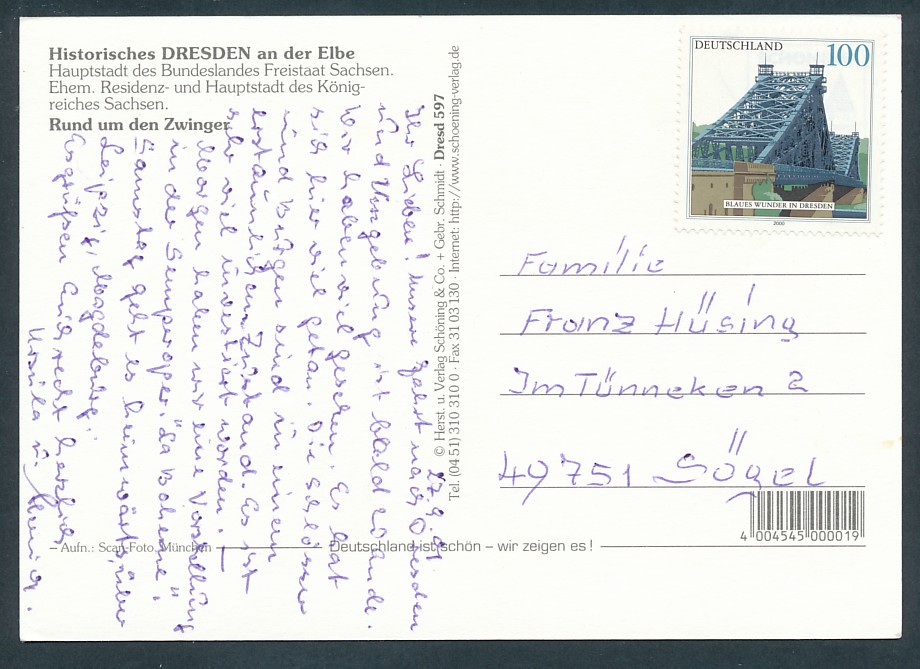 Historisches DRESDEN an der Elbe
Hauptstadt des Bundeslandes Freistaat Sachsen.
Ehem. Residenz- und Hauptstadt des König-
reiches Sachsen.
Rund um den Zwinger
27.9.01
Ihr Lieben! Unsere Fahrt nach Dresden
und Umgebung ist bald zu Ende.
Wir haben viel gesehen. Es hat
sich hier viel getan. Die Schlösser
und Burgen sind in einem
erstaunlichen Zustand. Es ist
sehr viel investiert worden. –
Morgen haben wir eine Vorstellung
in der Semperoper. "La Boheme"
Samstag geht es heimwärts, über
Leipzig, Magdeburg.
Es grüßen Euch recht herzlich
Ursula u.
– Aufn.: Scan-Foto, München
Deutschland ist schön – wir zeigen es !
© Herst. u. Verlag Schöning & Co. + Gebr. Schmidt · Dresd 597
Tel. (04 51) 310 310 0 · Fax 31 03 130 · Internet: http://www.schoening-verlag.de
DEUTSCHLAND 100
BLAUES WUNDER IN DRESDEN
2000
Familie
Franz Hüsing
Im Tünneken 2
49751 Sögel
4 004545 000019